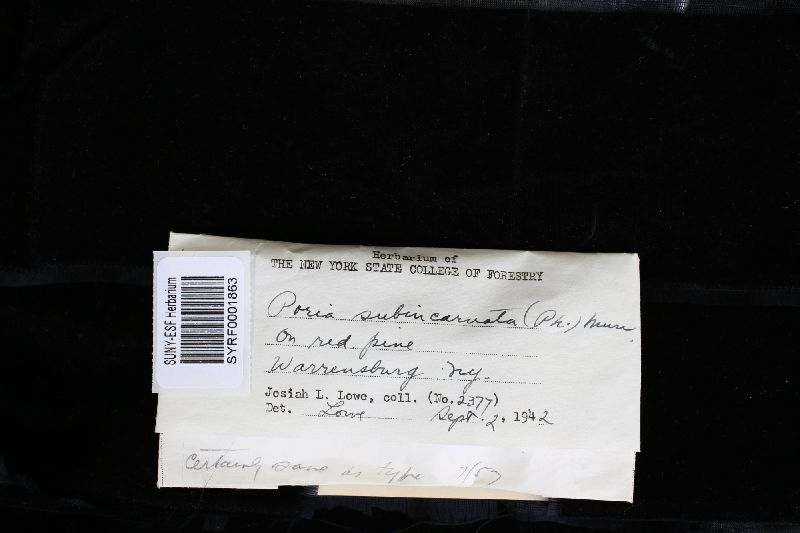 SUNY-ESF Herbarium
SYRF0001863
Herbarium of
THE NEW YORK STATE COLLEGE OF FORESTRY
Poria subincarnata (Pk.) Murr.
On red pine
Warrensburg N.Y.
Josiah L. Lowe, coll. (No. 2377)
Det. Lowe Sept. 2, 1942
Certainly same as type 7/57